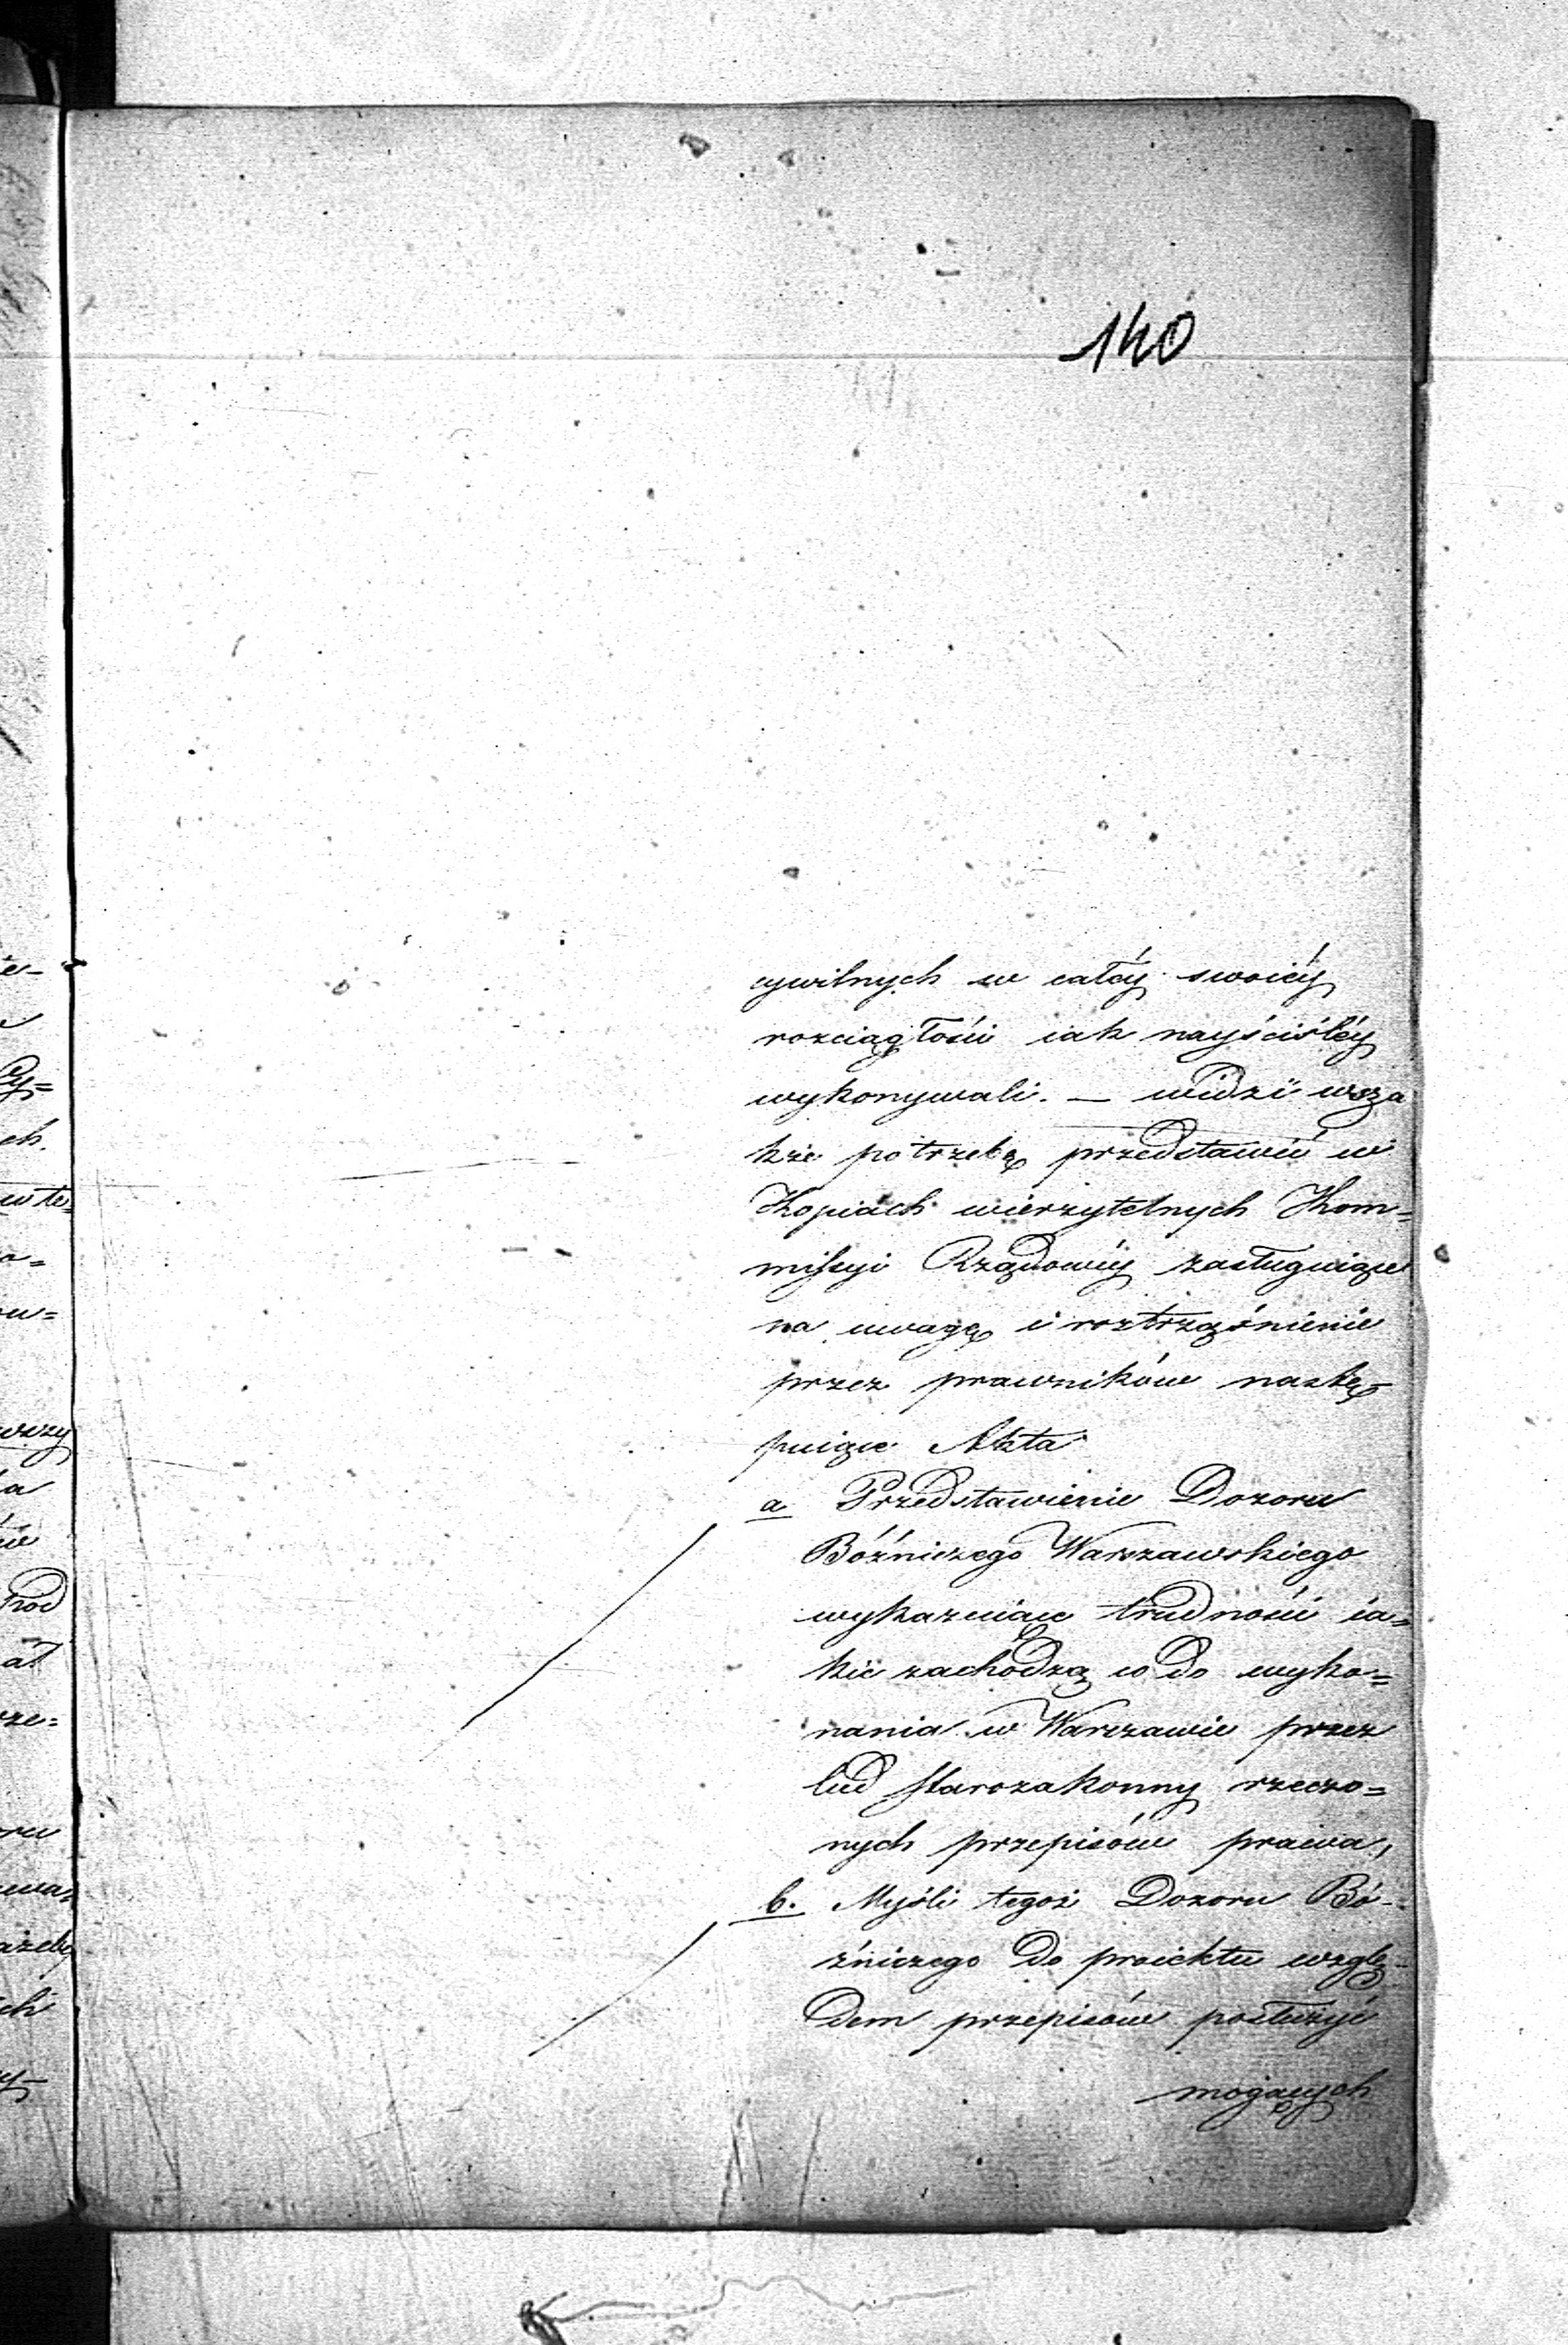 140
cywilnych w całéy swoiéy
rozciągłości iak nayściśléy
wykonywali. — widzi wsza
kże potrzebę przedstawić w
Kopiach wierzytelnych Kom=
missyi Rządowéy zasługuiące
na uwagę i roztrząśnienie
przez prawników nastę-
puiące Akta
a Przedstawienie Dozoru
Bóźniczego Warszawskiego
wykazuiące trudności ia=
kie zachodzą co do wyko=
nania w Warszawie przez
lud starozakonny rzeczo=
nych przepisów prawa,
b. Myśli tegoż Dozoru Bó-
źniczego do proiektu wzglę-
dem przepisów posłużyć
mogących